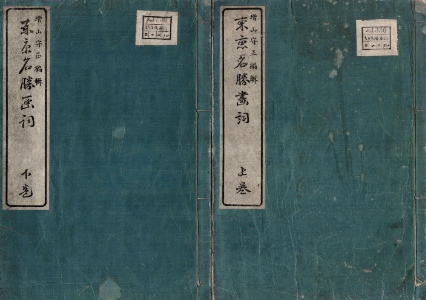 増山守正編輯
東京名勝画詞
下巻
増山守正編輯
東京名勝畫詞
上巻